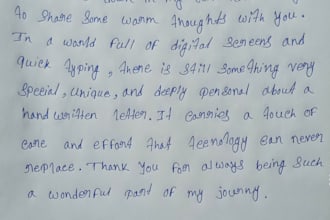 to share some warm thoughts with you.
In a world full of digital screens and
quick typing, there is still something very
special, unique, and deeply personal about a
handwritten letter. It carries a touch of
care and effort that tecnology can never
replace. Thank you for always being such
a wonderful part of my journy.